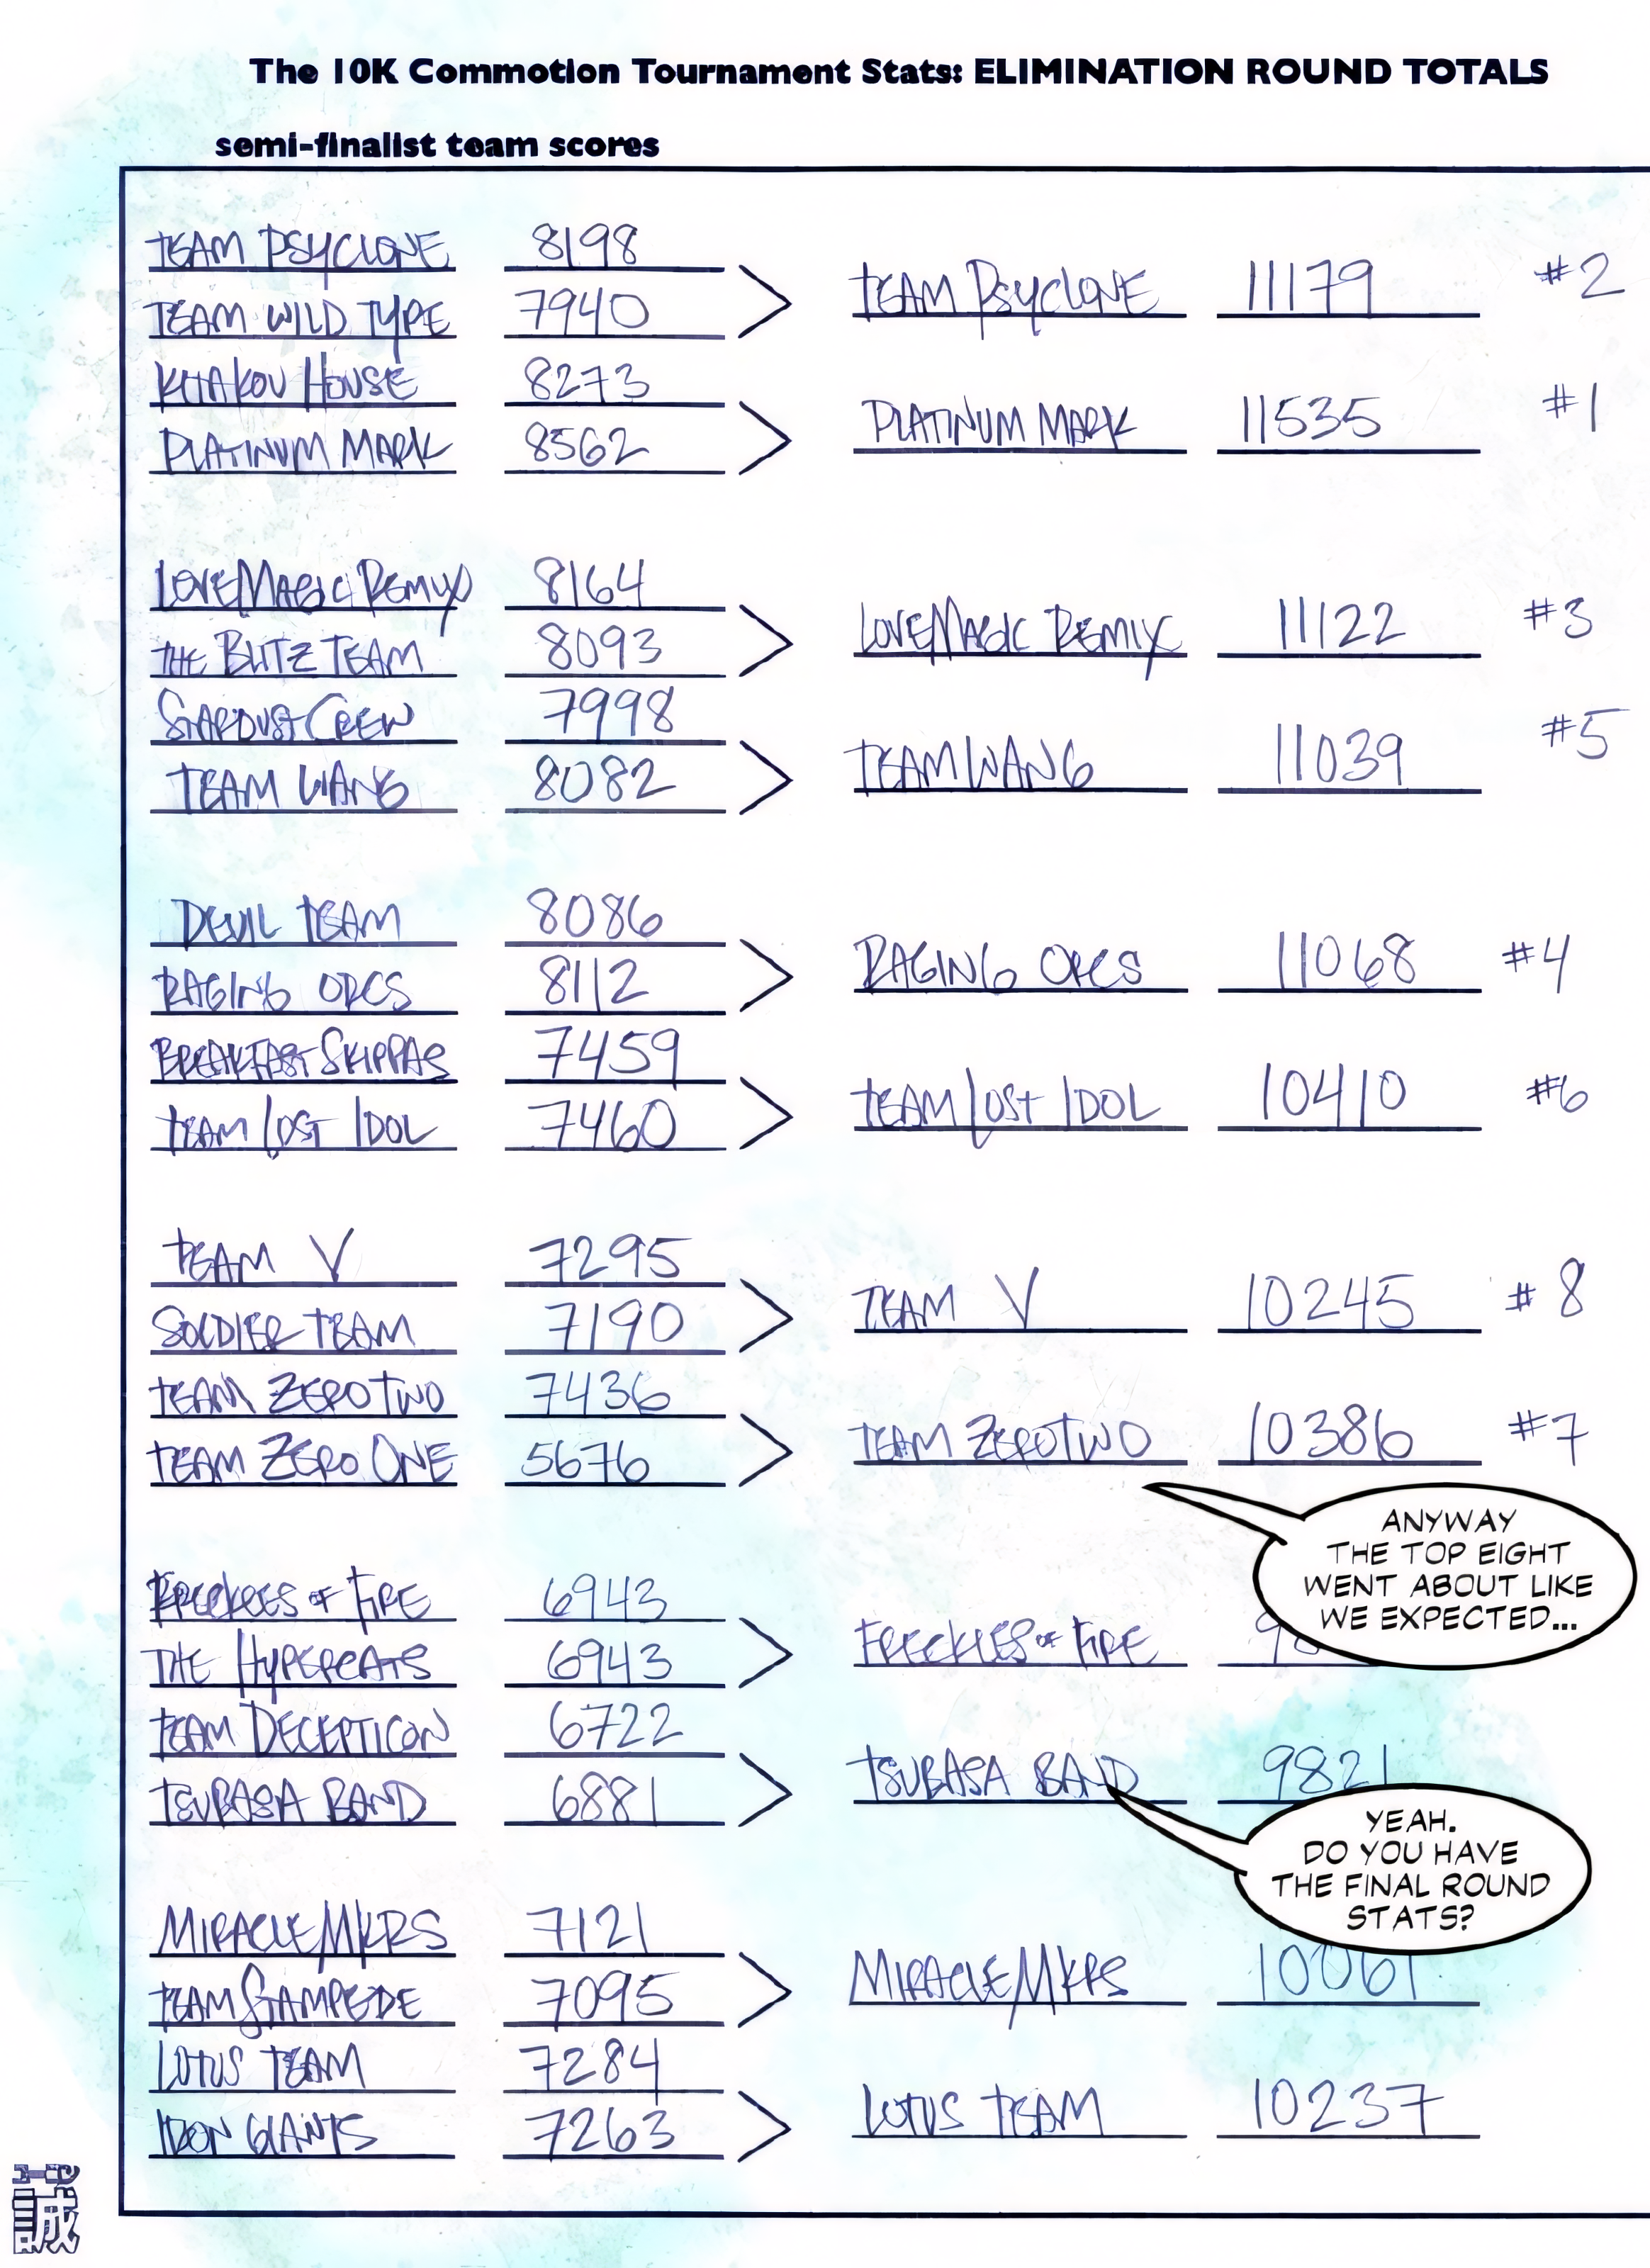 The 10K Commotion Tournament Stats: ELIMINATION ROUND TOTALS
semi-finalist team scores
TEAM PSYCLONE 8198
TEAM WILD TYPE 7940
TEAM PSYCLONE 11179 #2
KITAKOU HOUSE 8273
PLATINUM MARK 8562
PLATINUM MARK 11535 #1
LOVEMAGIC REMIX 8164
THE BLITZ TEAM 8093
LOVEMAGIC REMIX 11122 #3
STARDUST CREW 7998
TEAM WANG 8082
TEAM WANG 11039 #5
DEVIL TEAM 8086
RAGING ORCS 8112
RAGING ORCS 11068 #4
BREAKFAST SKIPPAS 7459
TEAM LOST IDOL 7460
TEAM LOST IDOL 10410 #6
TEAM V 7295
SOLDIER TEAM 7190
TEAM V 10245 #8
TEAM ZERO TWO 7436
TEAM ZERO ONE 5676
TEAM ZEROTWO 10386 #7
ANYWAY
THE TOP EIGHT
WENT ABOUT LIKE
WE EXPECTED...
FRECKLES OF FIRE 6943
THE HYPERCATS 6943
FRECKLES OF FIRE
TEAM DECEPTICON 6722
TSUBASA BAND 6881
TSUBASA BAND 9821
YEAH.
DO YOU HAVE
THE FINAL ROUND
STATS?
MIRACLEMKRS 7121
TEAM STAMPEDE 7095
MIRACLEMKRS 10061
LOTUS TEAM 7284
IRON GIANTS 7263
LOTUS TEAM 10237
誠